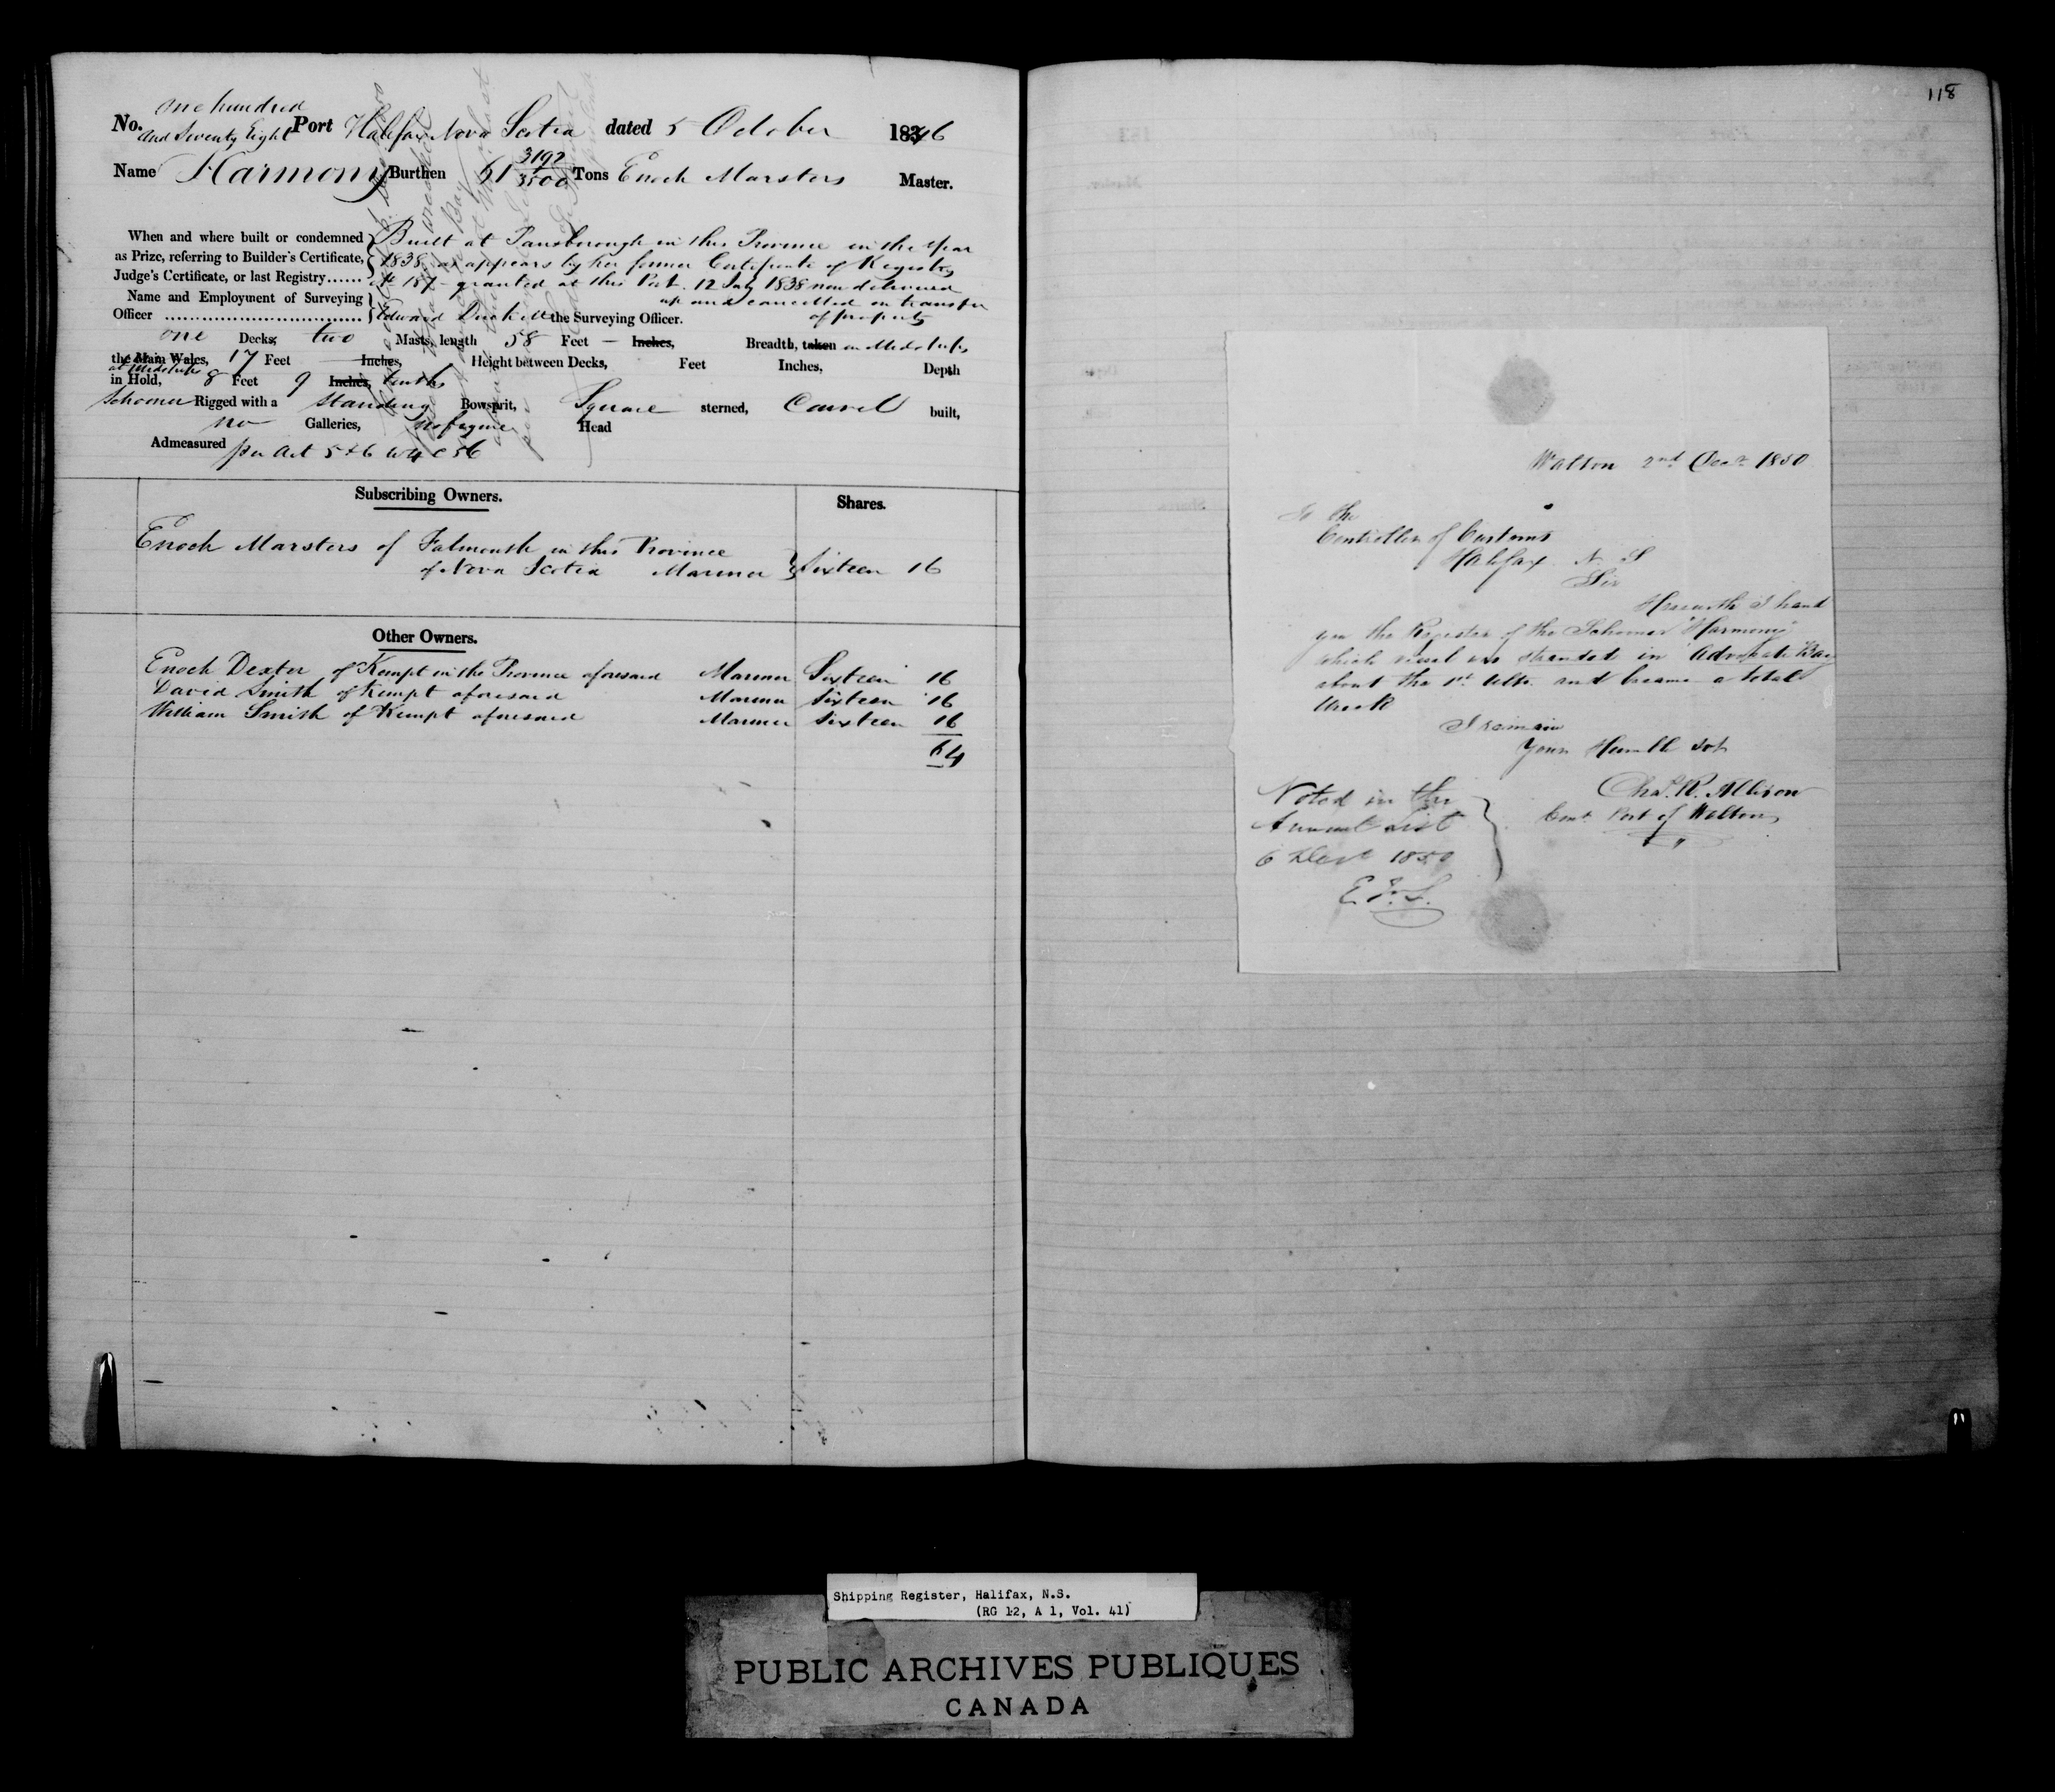 one hundred
No. and Seventy Eight Port Halifax Nova Scotia dated 5 October 1846
Name Harmony Burthen 61 3192/3500 Tons Enoch Marsters Master.
When and where built or condemned
as Prize, referring to Builder's Certificate,
Judge's Certificate, or last Registry......
Built at Parrsborough in this Province in the Year
1838, as appears by her former Certificate of Registry
No 187 granted at this Port 12 July 1838 now delivered
up and cancelled on transfer
of property
Name and Employment of Surveying
Officer .............................. Edward the Surveying Officer.
one Decks, two Masts, length 58 Feet — Inches, Breadth, taken in Midships
the Main Wales, 17 Feet Inches, Height between Decks, Feet Inches, Depth
at Midships
in Hold, 8 Feet 9 Inches, tenths
Schooner Rigged with a Standing Bowsprit, Square sterned, Carvel built,
no Galleries, no figure Head
Admeasured per Act 5 & 6 W 4 C 56
Subscribing Owners. Shares.
Enoch Marsters of Falmouth in this Province
of Nova Scotia Mariner Sixteen 16
Other Owners.
Enoch Dexter of Kempt in the Province aforesaid Mariner Sixteen 16
David Smith of Kempt aforesaid Mariner Sixteen 16
William Smith of Kempt aforesaid Mariner Sixteen 16
64
118
Walton 2nd Decr 1850
To the
Controller of Customs
Halifax N. S
Sir
Herewith I hand
you the Register of the Schooner "Harmony"
which vessel was stranded in Advocate Bay
about the 1st Ulto. and became a total
Wreck
I remain
Your Humble Svt
Chas. R. Allison
Cont Port of Walton
Noted in the
Annual List
6 Decr 1850
Shipping Register, Halifax, N.S.
(RG 12, A 1, Vol. 41)
PUBLIC ARCHIVES PUBLIQUES
CANADA